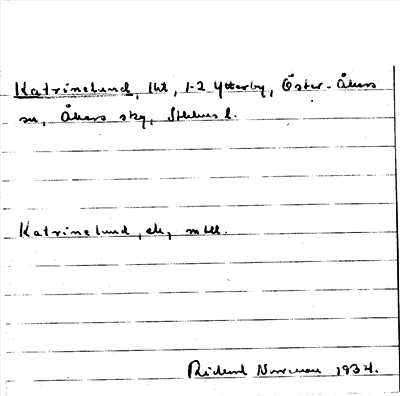 Katrinelund, lht, 1-2 Ytterby, Öster-Åkers
sn, Åkers skg, Sthlms l.
Katrinelund, ek, mtll.
Rickard Norrman 1934.